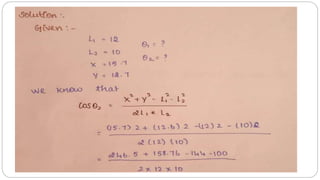 Solution :-
Given :-
L₁ = 12 θ₁ = ?
L₂ = 10 θ₂ = ?
X = 15.7
Y = 12.7
We know that
Cos θ₂ = X² + Y² - L₁² - L₂² / 2 L₁ × L₂
= (15.7) 2 + (12.6) 2 - (12) 2 - (10) 2 / 2 (12) (10)
= 246.5 + 158.76 - 144 - 100 / 2 × 12 × 10